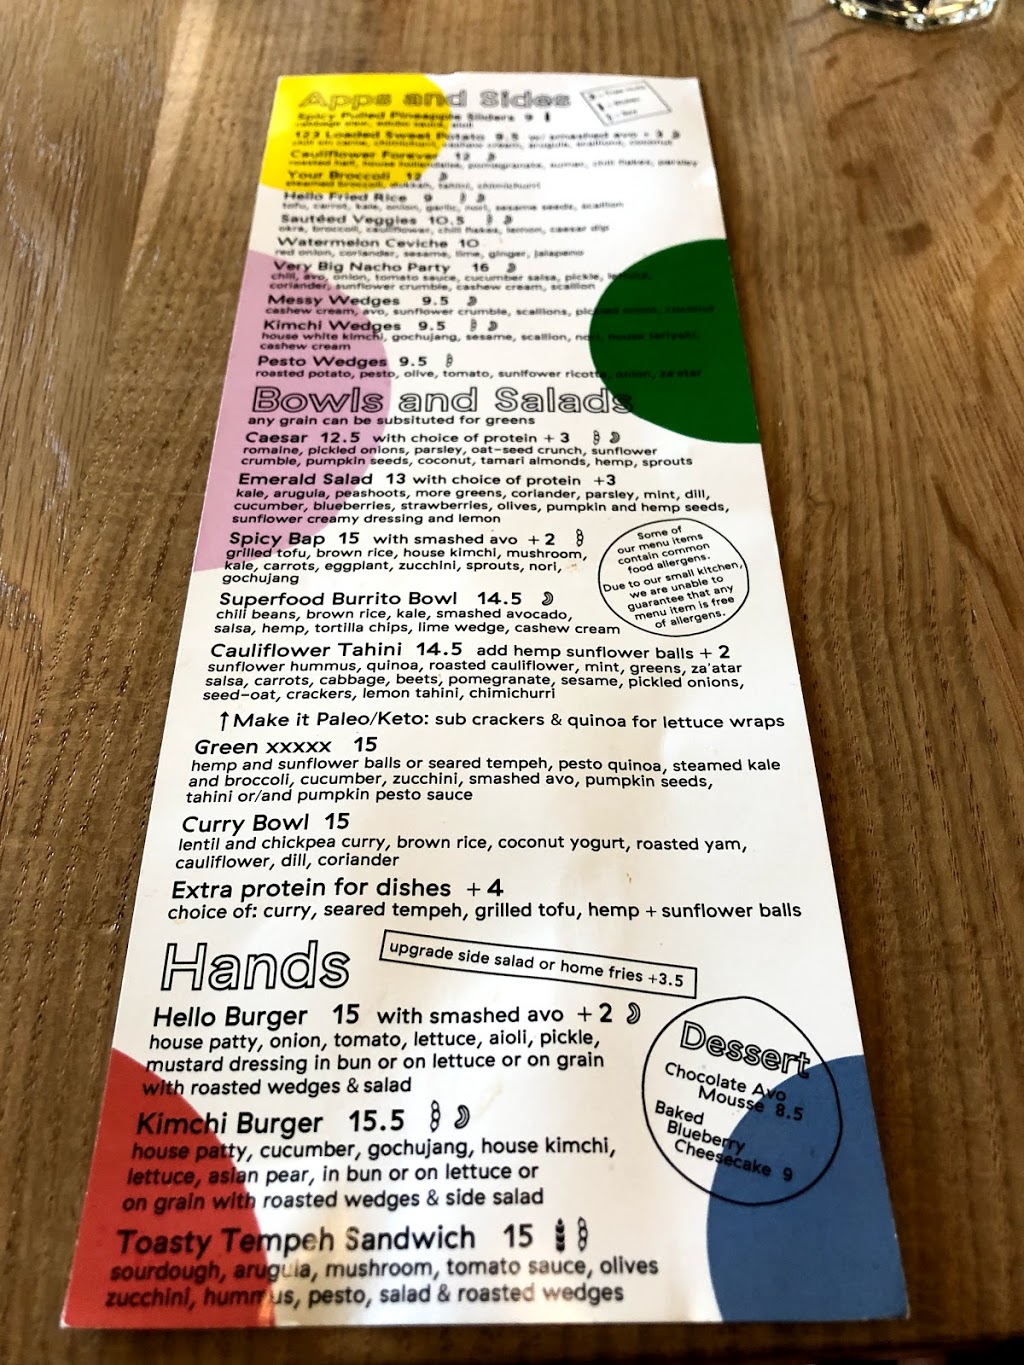 Apps and Sides
Spicy Pulled Pineapple Sliders 9
123 Loaded Sweet Potato 9.5 w/ smashed avo + 3
Cauliflower Forever 12
roasted half, house hollandaise, pomegranate, sumac, chili flakes, parsley
Your Broccoli 12
steamed broccoli, dukkah, tahini, chimichurri
Hello Fried Rice 9
tofu, carrot, kale, onion, garlic, nori, sesame seeds, scallion
Sautéed Veggies 10.5
okra, broccoli, cauliflower, chili flakes, lemon, caesar dip
Watermelon Ceviche 10
red onion, coriander, sesame, lime, ginger, jalapeno
Very Big Nacho Party 16
chili, avo, onion, tomato sauce, cucumber salsa, pickle, lettuce,
coriander, sunflower crumble, cashew cream, scallion
Messy Wedges 9.5
cashew cream, avo, sunflower crumble, scallions, pickled onions, coconut
Kimchi Wedges 9.5
house white kimchi, gochujang, sesame, scallion, nori, house teriyaki,
cashew cream
Pesto Wedges 9.5
roasted potato, pesto, olive, tomato, sunflower ricotta, onion, za'atar
Bowls and Salads
any grain can be subsituted for greens
Caesar 12.5 with choice of protein + 3
romaine, pickled onions, parsley, oat-seed crunch, sunflower
crumble, pumpkin seeds, coconut, tamari almonds, hemp, sprouts
Emerald Salad 13 with choice of protein +3
kale, arugula, peashoots, more greens, coriander, parsley, mint, dill,
cucumber, blueberries, strawberries, olives, pumpkin and hemp seeds,
sunflower creamy dressing and lemon
Spicy Bap 15 with smashed avo + 2
grilled tofu, brown rice, house kimchi, mushroom,
kale, carrots, eggplant, zucchini, sprouts, nori,
gochujang
Some of
our menu items
contain common
food allergens.
Due to our small kitchen,
we are unable to
guarantee that any
menu item is free
of allergens.
Superfood Burrito Bowl 14.5
chili beans, brown rice, kale, smashed avocado,
salsa, hemp, tortilla chips, lime wedge, cashew cream
Cauliflower Tahini 14.5 add hemp sunflower balls + 2
sunflower hummus, quinoa, roasted cauliflower, mint, greens, za'atar
salsa, carrots, cabbage, beets, pomegranate, sesame, pickled onions,
seed-oat, crackers, lemon tahini, chimichurri
↑ Make it Paleo/Keto: sub crackers & quinoa for lettuce wraps
Green xxxxx 15
hemp and sunflower balls or seared tempeh, pesto quinoa, steamed kale
and broccoli, cucumber, zucchini, smashed avo, pumpkin seeds,
tahini or/and pumpkin pesto sauce
Curry Bowl 15
lentil and chickpea curry, brown rice, coconut yogurt, roasted yam,
cauliflower, dill, coriander
Extra protein for dishes + 4
choice of: curry, seared tempeh, grilled tofu, hemp + sunflower balls
Hands
upgrade side salad or home fries +3.5
Hello Burger 15 with smashed avo + 2
house patty, onion, tomato, lettuce, aioli, pickle,
mustard dressing in bun or on lettuce or on grain
with roasted wedges & salad
Kimchi Burger 15.5
house patty, cucumber, gochujang, house kimchi,
lettuce, asian pear, in bun or on lettuce or
on grain with roasted wedges & side salad
Toasty Tempeh Sandwich 15
sourdough, arugula, mushroom, tomato sauce, olives
zucchini, hummus, pesto, salad & roasted wedges
Dessert
Chocolate Avo
Mousse 8.5
Baked
Blueberry
Cheesecake 9